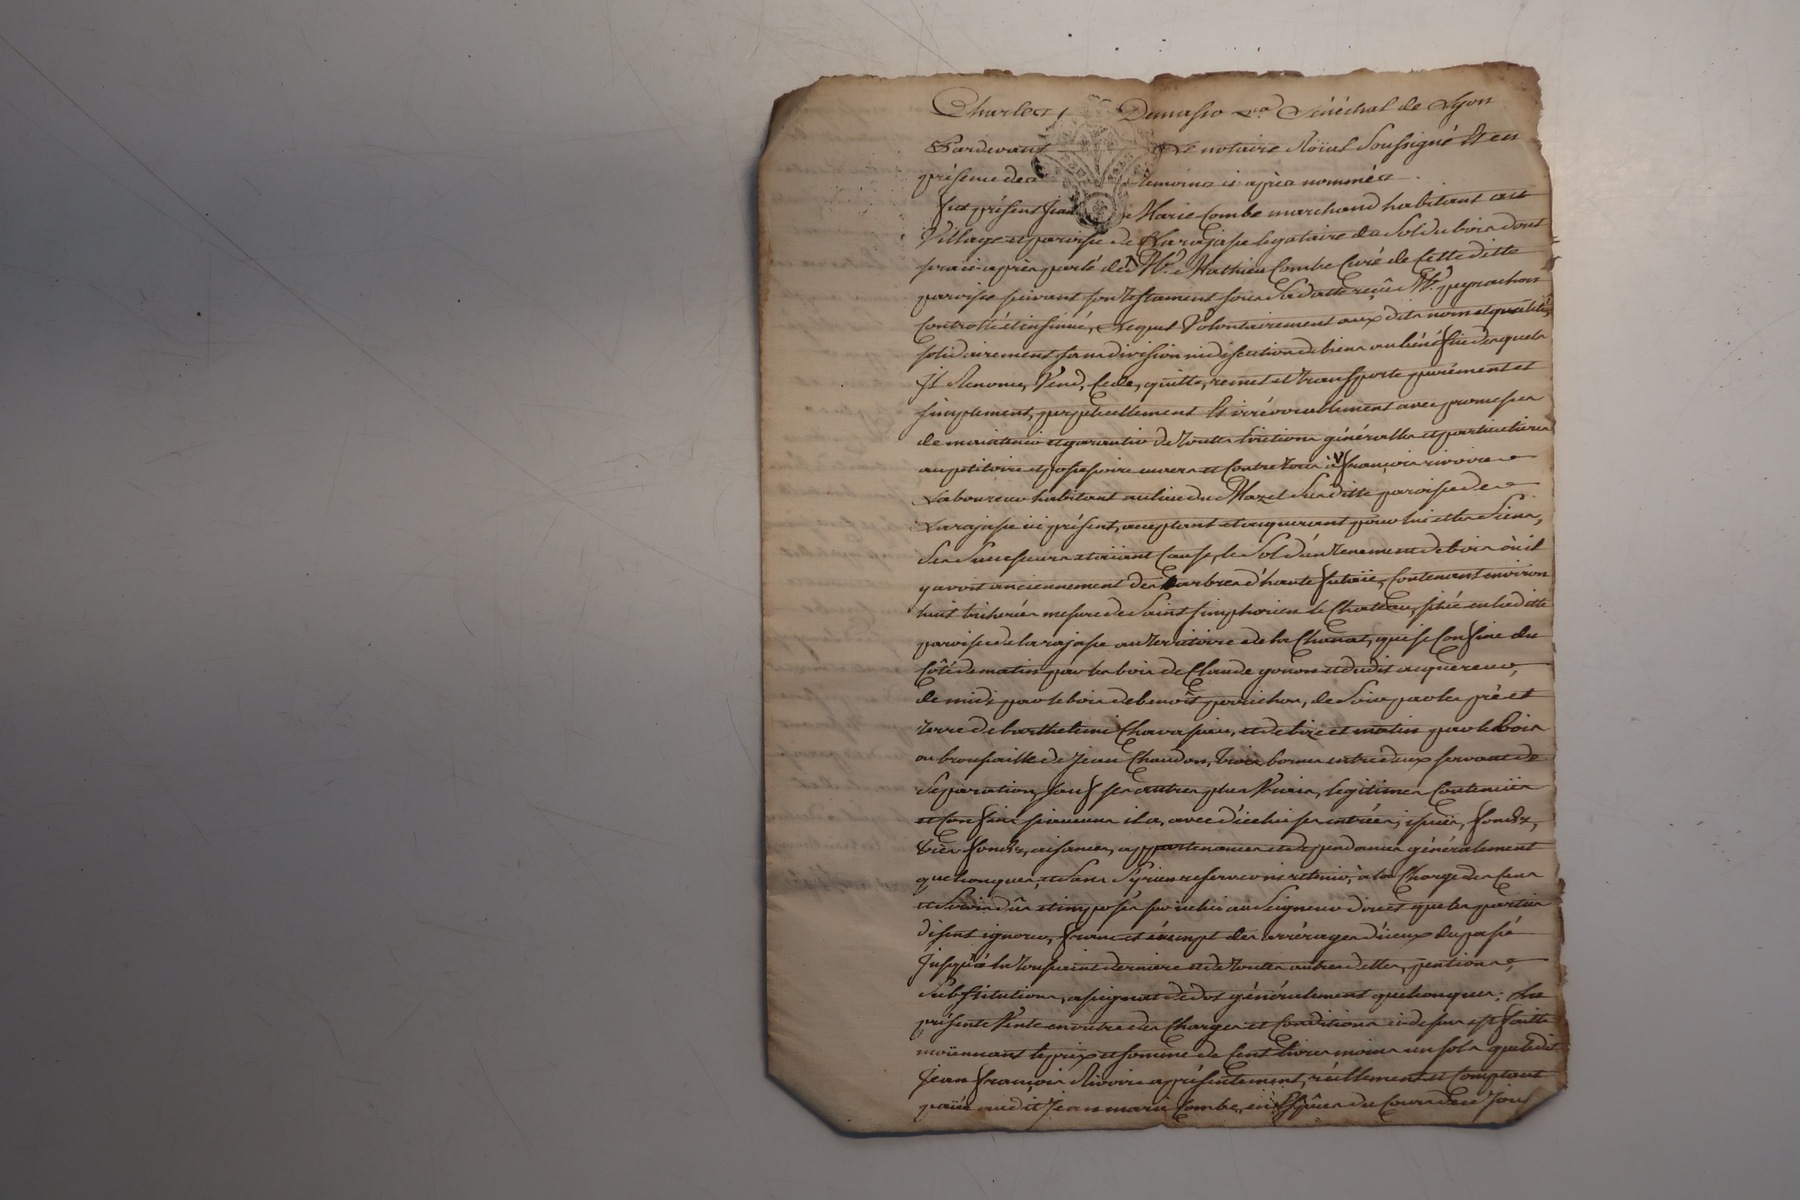 Charles Demasso Sénéchal de Lyon
Pardevant Le notaire Roïal Soussigné Et en
présence des temoins ci après nommés.
fut présent Jean Marie Combe marchand habitant au
Village et paroisse de Larajasse legataire du Sol du bois dont
sera ci après parlé de Mre Mathieu Combe Curé de Cette ditte
paroisse suivant son testament sous Sa datte reçû Me peyrachon
Controllé et insinué, Lequel Volontairement aux dits noms et qualités
solidairement sans division ni discution de biens au béné fice desquels
Il Renonce, Vend, Cede, quitte, remet et transporte purément et
simplement, perpetuellement Et irrévocablement avec promesses
de maintenir et garantir de toutes Evictions généralles et particulieres
au petitoire et possessoire envers et Contre tous à françois rivoire
Laboureur habitant au lieu du Mazel Susditte paroisse de
Larajasse ici présent, acceptant et acquerant pour lui et les Siens,
Ses Successeurs et aïiant Cause, le Sol d'un tenement de bois où il
y avoit anciennement des arbres d'haute futaïe, Contenant environ
huit bicherées mesure de Saint Simphorien le Chateau, situé en laditte
paroisse de larajasse au territoire de la Chanat, qui se Con fine du
Côté de matin par les bois de Claude gonon et dudit acquereur,
de midi par le bois de benoît perrichon, de Soir par les pré et
terre de barthelemi Chavassieu, et de bize et matin par le Bois
ou broussaille de Jean Chaudon, trois bornes entre deux servant de
Séparation, Sau f ses autres plus Vrais, legitimes Contenües
et Con fins si aucuns il a, avec d'icelui ses entrées, issües, fonds,
très fonds, aisances, appartenances et dépendances généralement
quelconques, et Sans Sy rien reserver ni retenir, à la Charge des Cens
et Servis dûs et imposés sur icelui au Seigneur direct que les parties
disent ignorer, franc et éxempt des arrérages d'iceux du passé
jusqu'à la toussaint derniere et de toutes autres dettes, pentions,
Substitutions, assignat de dot généralement quelconques; La
présente Vente en outre des Charges et Conditions ci dessus est faitte
moïennant le prix et somme de Cent livres moins un sols que ledit
Jean françois Rivoire a présentement, réellement et Comptant
païée audit Jean marie Combe, en Espèces du Cours de ce Jour